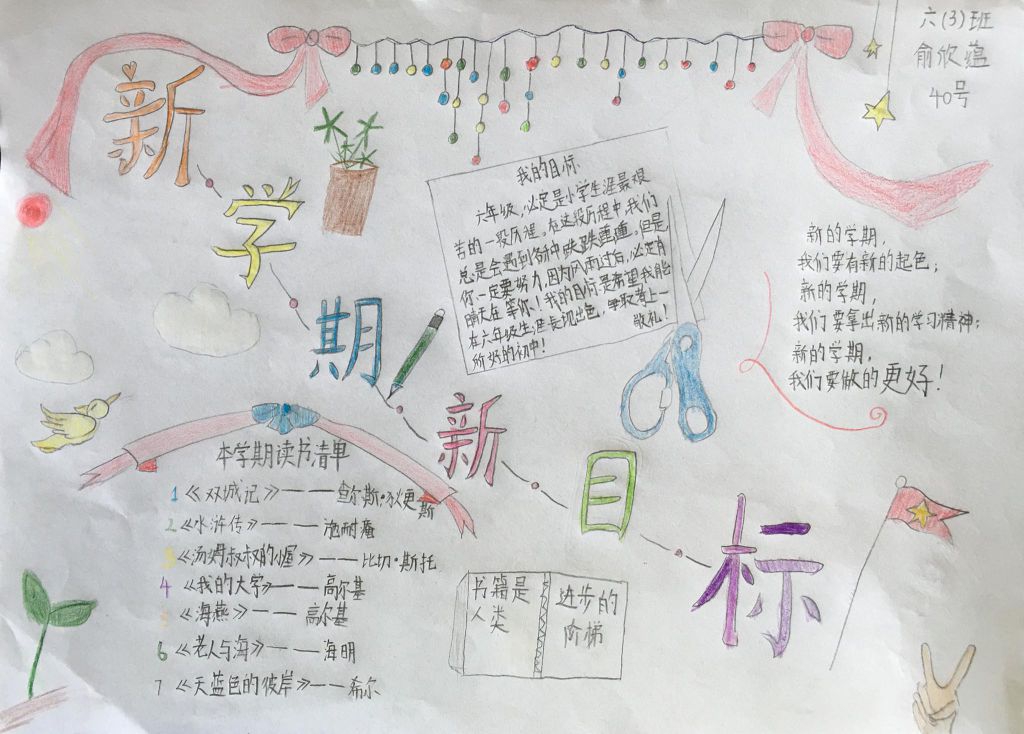 六(3)班
俞欣蕴
40号
新学期新目标
我的目标
六年级,必定是小学生涯最艰
苦的一段历程。在这段历程中,我们
总是会遇到各种跌跌重重,但是
你一定要努力,因为风雨过后,必定有
晴天在等你!我的目标是希望我能
在六年级生涯表现出色,争取考上一
所好的初中!
敬礼!
新的学期,
我们要有新的起色;
新的学期,
我们要拿出新的学习精神;
新的学期,
我们要做的更好!
本学期读书清单
1《双城记》——查尔斯·狄更斯
2《水浒传》——施耐庵
3《汤姆叔叔的小屋》——比切·斯托
4《我的大学》——高尔基
5《海燕》——高尔基
6《老人与海》——海明
7《天蓝色的彼岸》——希尔
书籍是
人类
进步的
阶梯